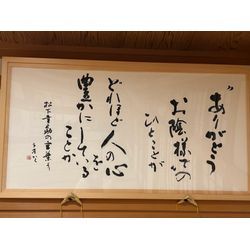 "ありがとう
お陰様での
ひとことが
どれほど人の心を
豊かにしている
ことか
松下幸助の言葉より